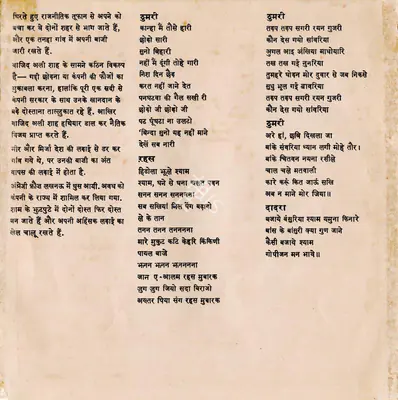 घिरते हुए राजनीतिक तूफ़ान से अपने को
बचा कर वे दोनों शहर से भाग जाते हैं,
और एक तनहा गांव में अपनी बाजी
जारी रखते हैं.
वाजिद अली शाह के सामने कठिन विकल्प
है— गद्दी छोड़ना या कंपनी की फौजों का
मुकाबला करना, हालांकि पूरी एक सदी से
कंपनी सरकार के साथ उनके खानदान के
बड़े दोस्ताना ताल्लुकात रहे हैं. आखिर
वाजिद अली शाह हथियार डाल कर नैतिक
विजय प्राप्त करते हैं.
मीर और मिर्जा देश की लड़ाई से डर कर
गांव गये थे, पर उनकी बाजी का अंत
वापस की लड़ाई में होता है.
अंग्रेजी फ़ौज लखनऊ में घुस आयी. अवध को
कंपनी के राज्य में शामिल कर लिया गया.
शाम के झुटपुटे में दोनों दोस्त फिर दोस्त
बन जाते हैं और अपनी अहिंसक लड़ाई का
खेल चालू रखते हैं.
ठुमरी
कान्हा मैं तोसे हारी
छोड़ो सारी
सुनो बिहारी
नहीं मैं दूंगी तोहे गारी
निश दिन छैल
करत नहीं जाने देत
पनघटवा की गैल सखी री
छोड़ो जी छोड़ो जी
घट घूंघटा ना उलटो
'बिन्दा सुनो यह नहीं माने
देखें सब नारी
रहस
हिंडोला झूले श्याम
श्याम, घने से घना पवन
सनन सनन सननननन
सब सखियां मिल पेंग बढ़ावो
से के तान
तनन तनन तनननना
मारे मुकुट कटि केहरि किंकिणी
पायल बाजे
झनन झनन झनननना
जान ए-आलम रहस मुबारक
जुग जुग जियो सदा विराजो
अख्तर पिया संग रहस मुबारक
ठुमरी
तड़प तड़प सगरी रयन गुजरी
कौन देस गयो सांवरिया
जुगल आइ अंखिया माधोवारि
तख तख गई दुनरिया
तुमहरे घोवन मोर दुवार से जब निकसे
सुध भूल गई डावरिया
तड़प तड़प सगरी रयन गुजरी
कौन देस गयो सांवरिया
ठुमरी
अरे हां, छबि दिखला जा
बांके संवरिया ध्यान लगी मोहे तोर।
बांके चितवन नयना रसीले
चाल चले मतवाली
कारे करूं कित जाऊं सखि
अब न माने मोर जिया॥
दादरा
बजाये बंसुरिया श्याम यमुना किनारे
बांस के बांसुरी क्या गुण जाने
कैसी बजाये श्याम
गोपीजन मन भाये॥